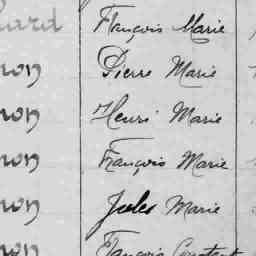 François Marie
Pierre Marie
Henri Marie
François Marie
Jules Marie
François Constant